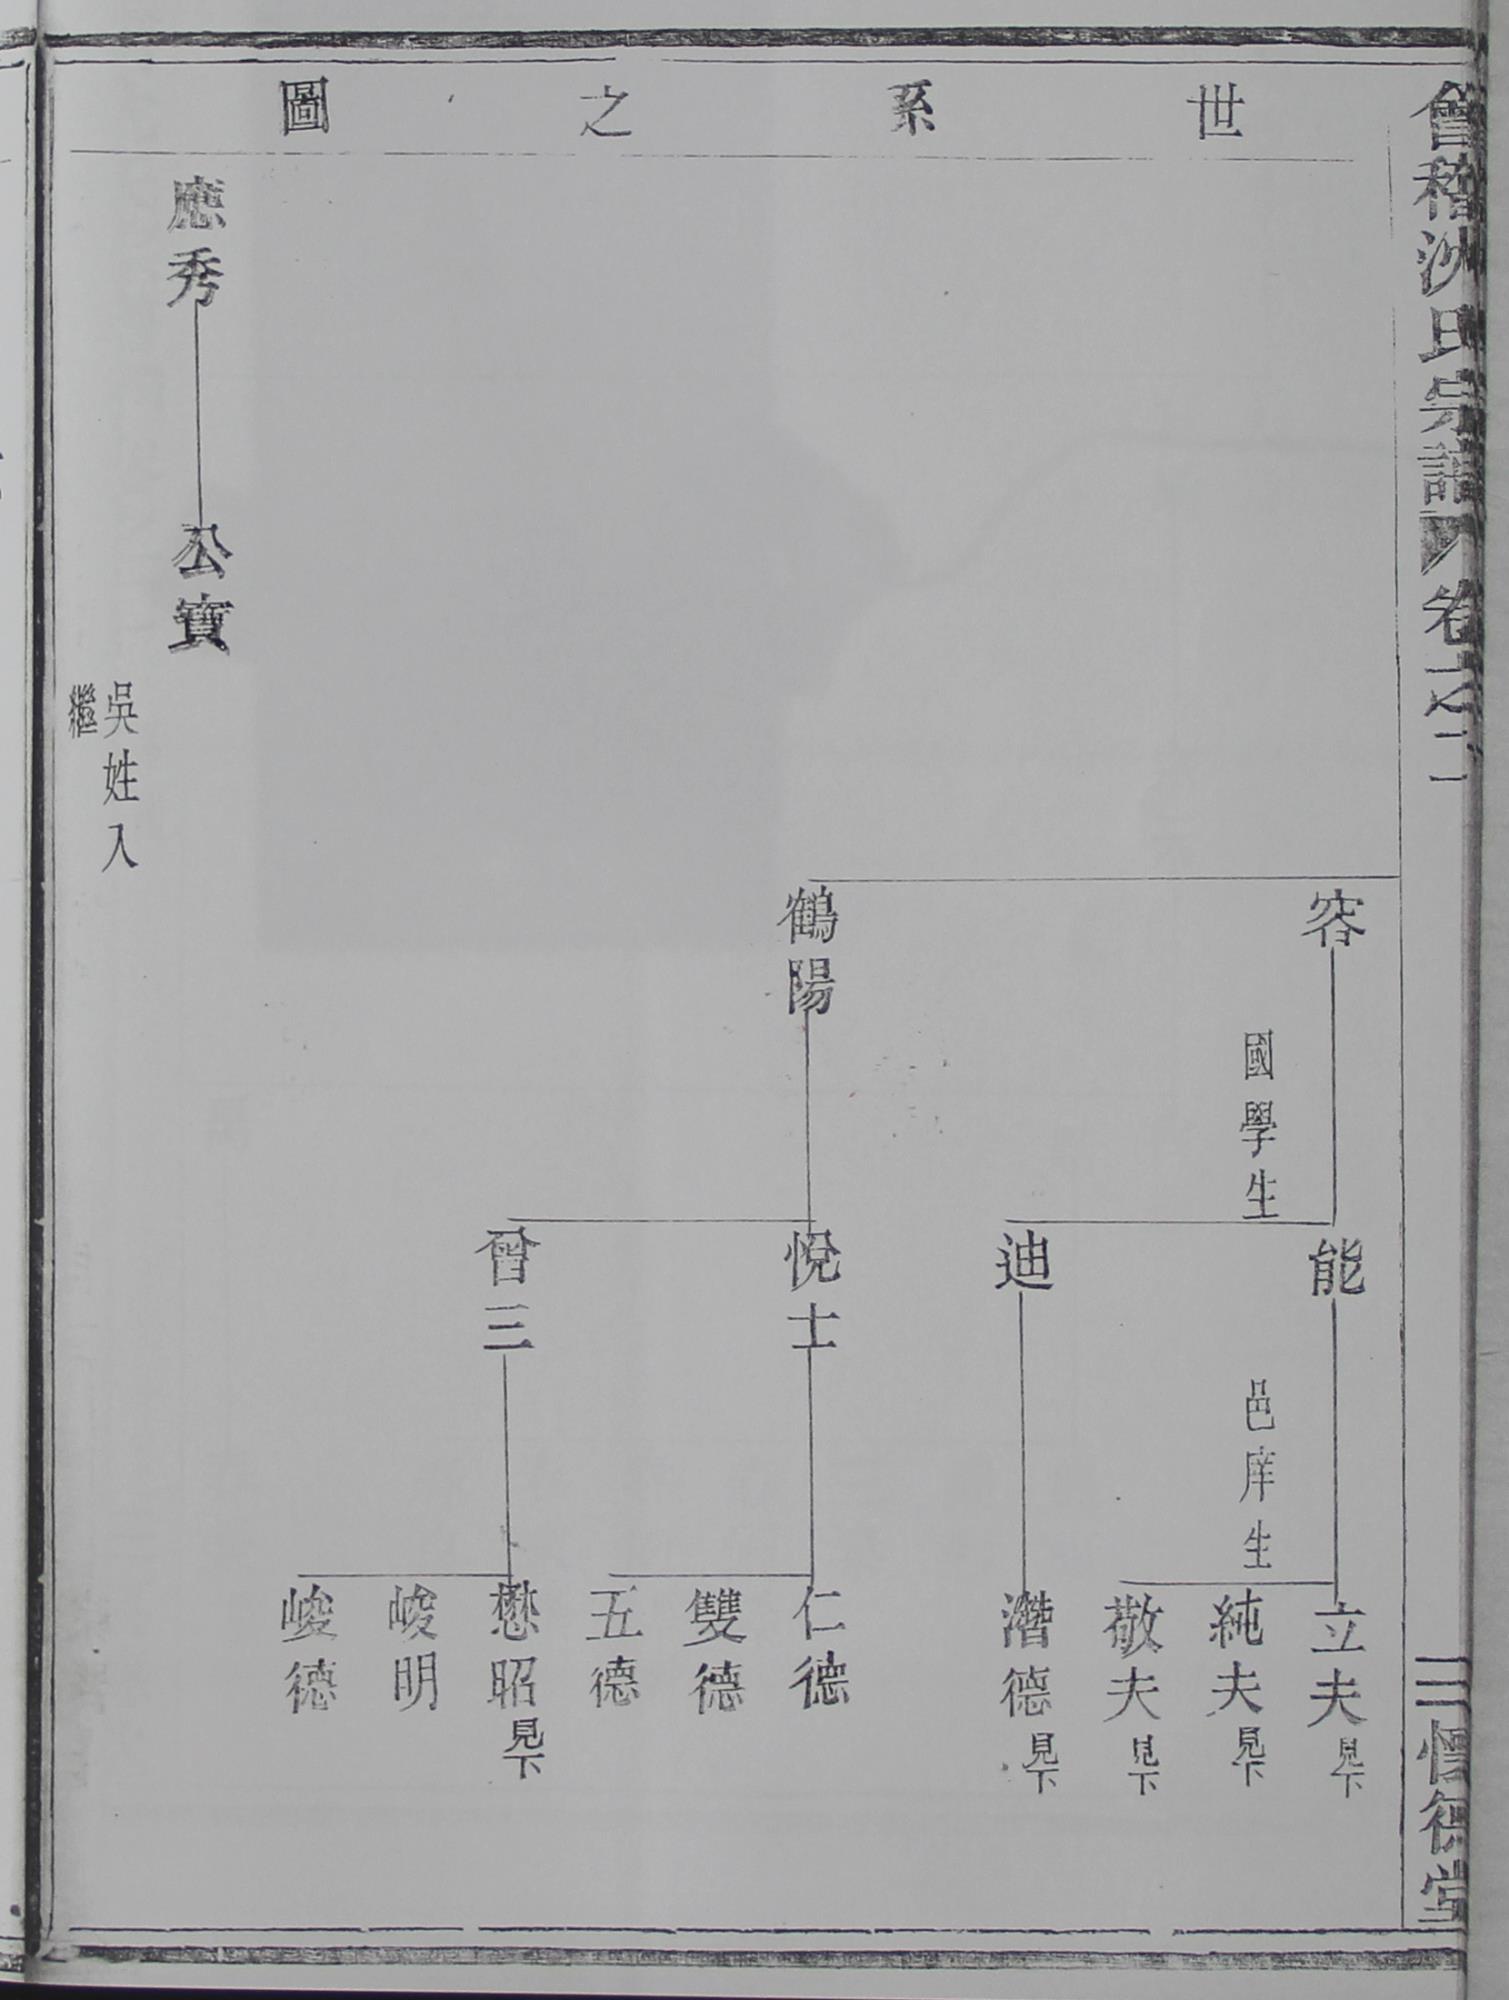 會稽沙氏宗譜 卷之二
二 悟德堂
世系之圖
容
國學生
能
邑庠生
立夫見下
純夫見下
敬夫見下
迪
濳德見下
鶴陽
悅士
仁德
雙德
五德
曾三
懋昭見下
峻明
峻德
應秀
公實
吳姓入
繼